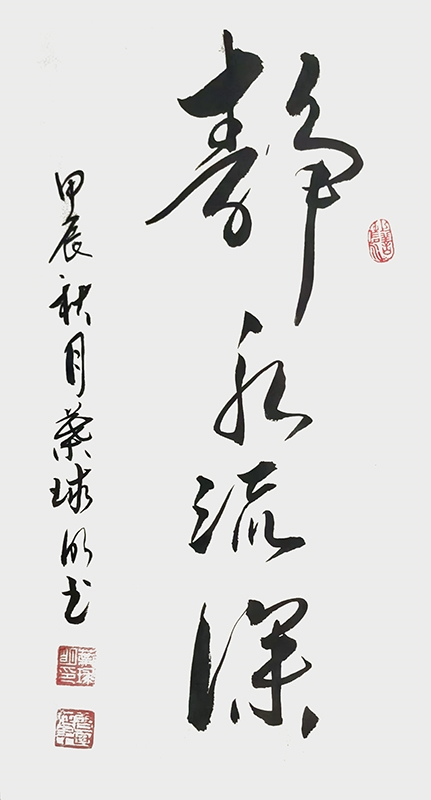 静水流深
甲辰秋月叶球明书